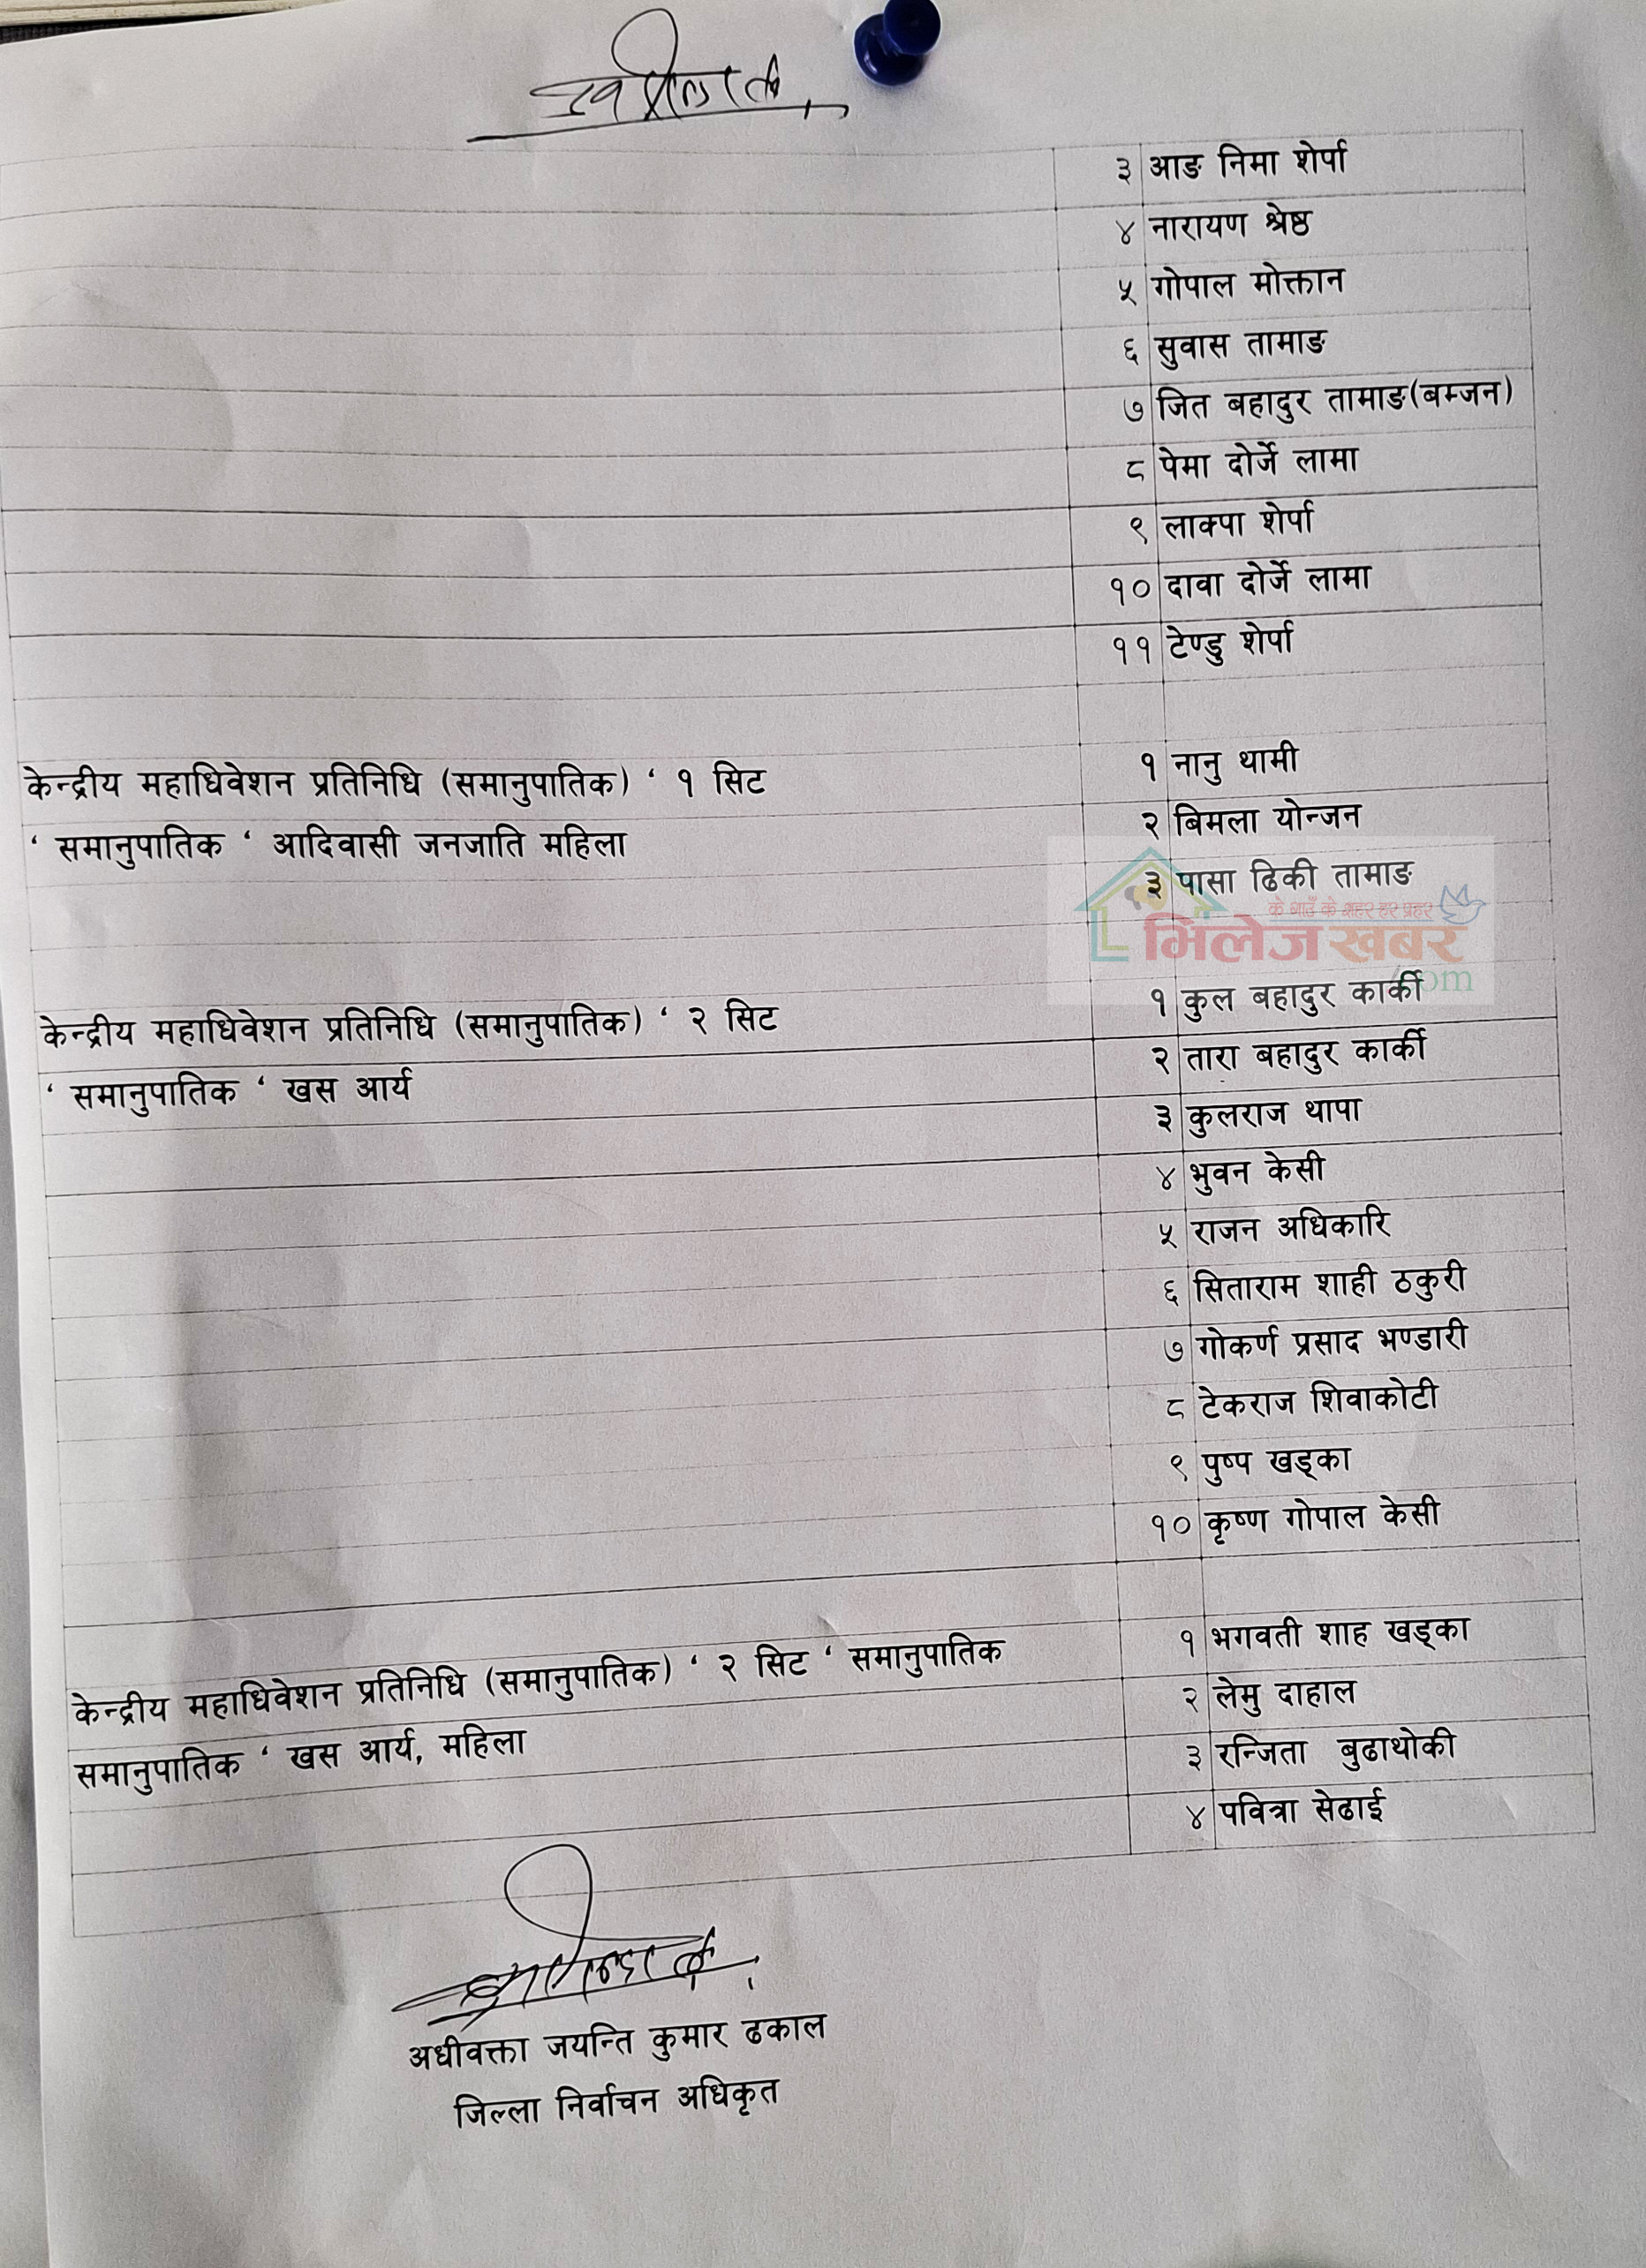 ३ आङ निमा शेर्पा
४ नारायण श्रेष्ठ
५ गोपाल मोक्तान
६ सुवास तामाङ
७ जित बहादुर तामाङ(बम्जन)
८ पेमा दोर्जे लामा
९ लाक्पा शेर्पा
१० दावा दोर्जे लामा
११ टेण्डु शेर्पा
केन्द्रीय महाधिवेशन प्रतिनिधि (समानुपातिक) ‘ १ सिट १ नानु थामी
‘ समानुपातिक ‘ आदिवासी जनजाति महिला २ बिमला योन्जन
३ पासा ढिकी तामाङ
के गाउँ के शहर हर प्रहर
भिलेज खबर
.com
केन्द्रीय महाधिवेशन प्रतिनिधि (समानुपातिक) ‘ २ सिट १ कुल बहादुर कार्की
‘ समानुपातिक ‘ खस आर्य २ तारा बहादुर कार्की
३ कुलराज थापा
४ भुवन केसी
५ राजन अधिकारि
६ सिताराम शाही ठकुरी
७ गोकर्ण प्रसाद भण्डारी
८ टेकराज शिवाकोटी
९ पुष्प खड्का
१० कृष्ण गोपाल केसी
केन्द्रीय महाधिवेशन प्रतिनिधि (समानुपातिक) ‘ २ सिट ‘ समानुपातिक १ भगवती शाह खड्का
समानुपातिक ‘ खस आर्य, महिला २ लेमु दाहाल
३ रन्जिता बुढाथोकी
४ पवित्रा सेढाई
अधीवक्ता जयन्ति कुमार ढकाल
जिल्ला निर्वाचन अधिकृत